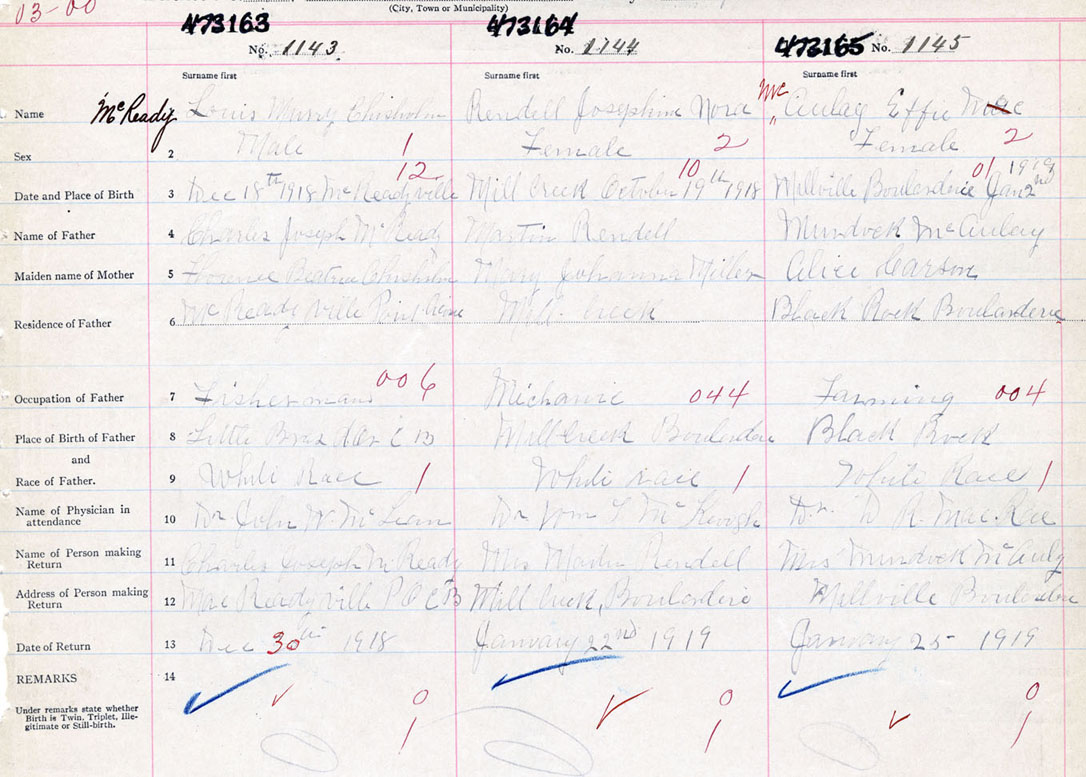 03-00
(City, Town or Municipality)
473163 473164 473165
No. 1143 No. 1144 No. 1145
Surname first Surname first Surname first
Name McReady Louis Murry Chisholm Rendell Josephine Nora Mc Aulay Effie Mae
Sex 2 Male 1 Female 2 Female 2
12 10 01 1919
Date and Place of Birth 3 Dec 18th 1918 McReadyville Mill Creek October 19th 1918 Millville Boularderie Jan 2nd
Name of Father 4 Charles Joseph McReady Martin Rendell Murdock McAulay
Maiden name of Mother 5 Florence Beatrice Chisholm Mary Johanna Miller Alice Carson
Residence of Father 6 McReadyville Mill Creek Black Rock Boularderie
Occupation of Father 7 Fisherman 006 Michanic 044 Farming 004
Place of Birth of Father 8 Little Bras dOr C B Mill Creek Boularderie Black Rock
and
Race of Father. 9 White Race 1 White race 1 White Race 1
Name of Physician in attendance 10 Dr John W McLean Dr Wm T McKeough Dr. D R. MacRae
Name of Person making Return 11 Charles Joseph McReady Mrs Martin Rendell Mrs Murdock McAuly
Address of Person making Return 12 MacReadyville P O C B Mill Creek, Boularderie Millville Boularderie
Date of Return 13 Dec 30th 1918 January 22nd 1919 January 25 1919
REMARKS 14
Under remarks state whether Birth is Twin, Triplet, Illegitimate or Still-birth. 0 0 0
1 1 1